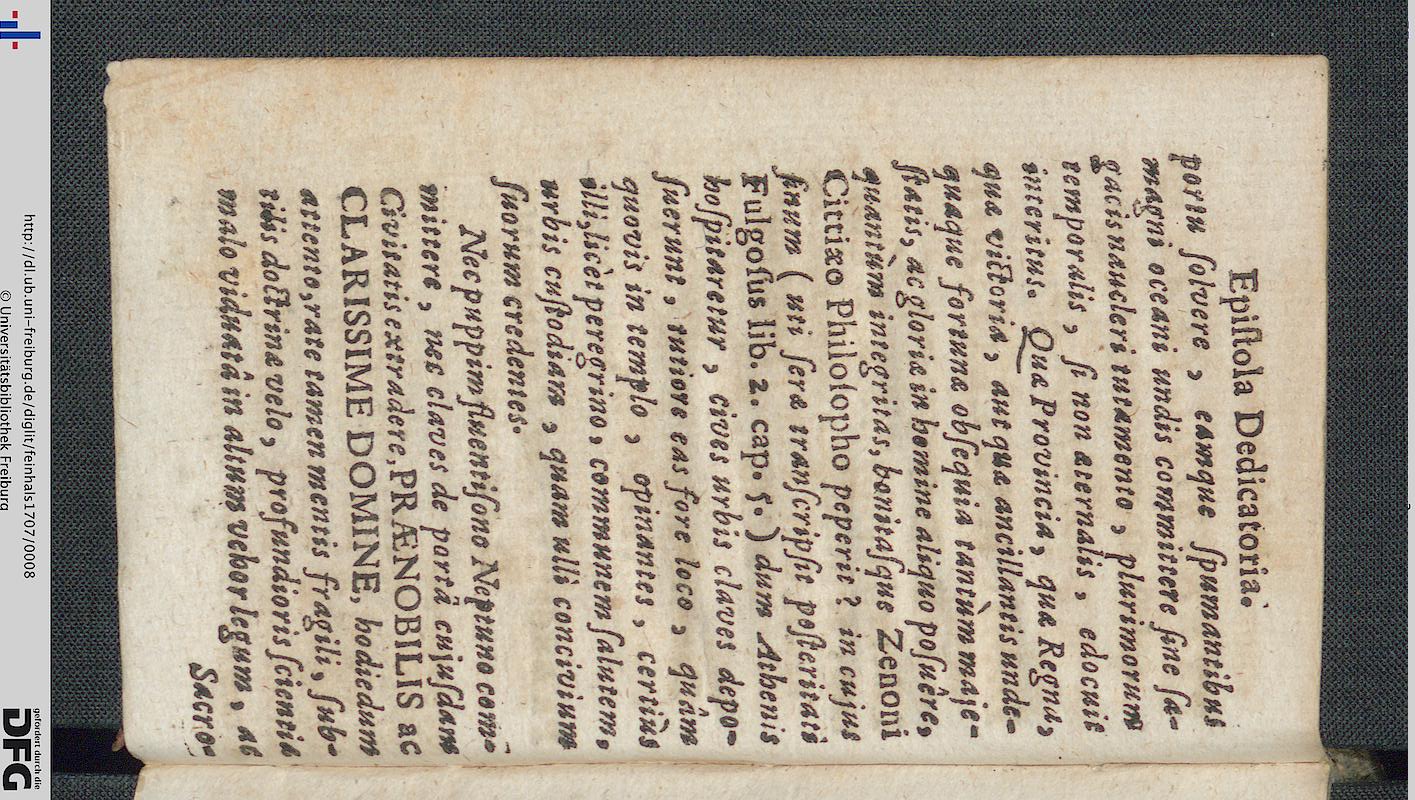 Epiſtola Dedicatoria.
portu ſolvere, eamque ſpumantibus
magni oceani undis committere ſine ſa-
gacis naucleri juvamento, plurimorum
temporalis, ſi non æternalis, edocuit
interitus. Quæ Provincia, quæ Regna,
quæ victoria, aut quæ ancillantis unde-
quaque fortunæ obſequia tantùm maje-
ſtatis, ac gloriæ in homine aliquo poſuêre,
quantùm integritas, bonitaſque Zenoni
Cittixo Philoſopho peperit? in cujus
ſinum (uti ſeræ tranſcripſit poſteritati
Fulgoſus lib. 2. cap. 5.) dum Athenis
hoſpitaretur, cives urbis claves depo-
ſuerunt, tutiore eas fore loco, quàm
quovis in templo, opinantes, certiùs
illi, licèt peregrino, communem ſalutem,
urbis cuſtodiam, quam ulli concivium
ſuorum credentes.
Nec puppim fluentiſono Neptuno com-
mittere, nec claves de portâ cujuſdam
Civitatis extradere, PRÆNOBILIS ac
CLARISSIME DOMINE, hodiedum
attento, rate tamen mentis fragili, ſub-
tilis doctrinæ velo, profundioris ſcientiæ
malo viduatâ in altum vehor legum, ac
Sacro-
http://dl.ub.uni-freiburg.de/diglit/feinhals1707/0008
© Universitätsbibliothek Freiburg
gefördert durch die
DFG